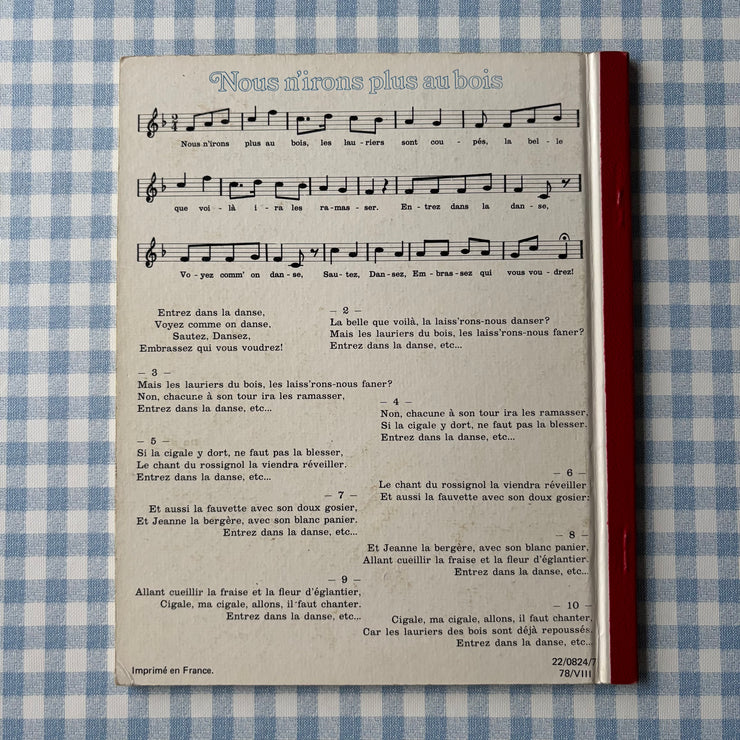 Nous n'irons plus au bois
2
4
Nous n'irons plus au bois, les lau - riers sont cou - pés, la bel - le
que voi - là i - ra les ra - mas - ser. En - trez dans la dan - se,
Vo - yez comm' on dan - se, Sau - tez, Dan - sez, Em - bras - sez qui vous vou - drez!
Entrez dans la danse,
Voyez comme on danse,
Sautez, Dansez,
Embrassez qui vous voudrez!
– 2 –
La belle que voilà, la laiss'rons-nous danser?
Mais les lauriers du bois, les laiss'rons-nous faner?
Entrez dans la danse, etc...
– 3 –
Mais les lauriers du bois, les laiss'rons-nous faner?
Non, chacune à son tour ira les ramasser,
Entrez dans la danse, etc...
– 4 –
Non, chacune à son tour ira les ramasser.
Si la cigale y dort, ne faut pas la blesser.
Entrez dans la danse, etc...
– 5 –
Si la cigale y dort, ne faut pas la blesser,
Le chant du rossignol la viendra réveiller.
Entrez dans la danse, etc...
– 6 –
Le chant du rossignol la viendra réveiller
Et aussi la fauvette avec son doux gosier:
– 7 –
Et aussi la fauvette avec son doux gosier,
Et Jeanne la bergère, avec son blanc panier.
Entrez dans la danse, etc...
– 8 –
Et Jeanne la bergère, avec son blanc panier,
Allant cueillir la fraise et la fleur d'églantier.
Entrez dans la danse, etc...
– 9 –
Allant cueillir la fraise et la fleur d'églantier,
Cigale, ma cigale, allons, il faut chanter.
Entrez dans la danse, etc...
– 10 –
Cigale, ma cigale, allons, il faut chanter,
Car les lauriers des bois sont déjà repoussés.
Entrez dans la danse, etc...
Imprimé en France.
22/0824/7
78/VIII